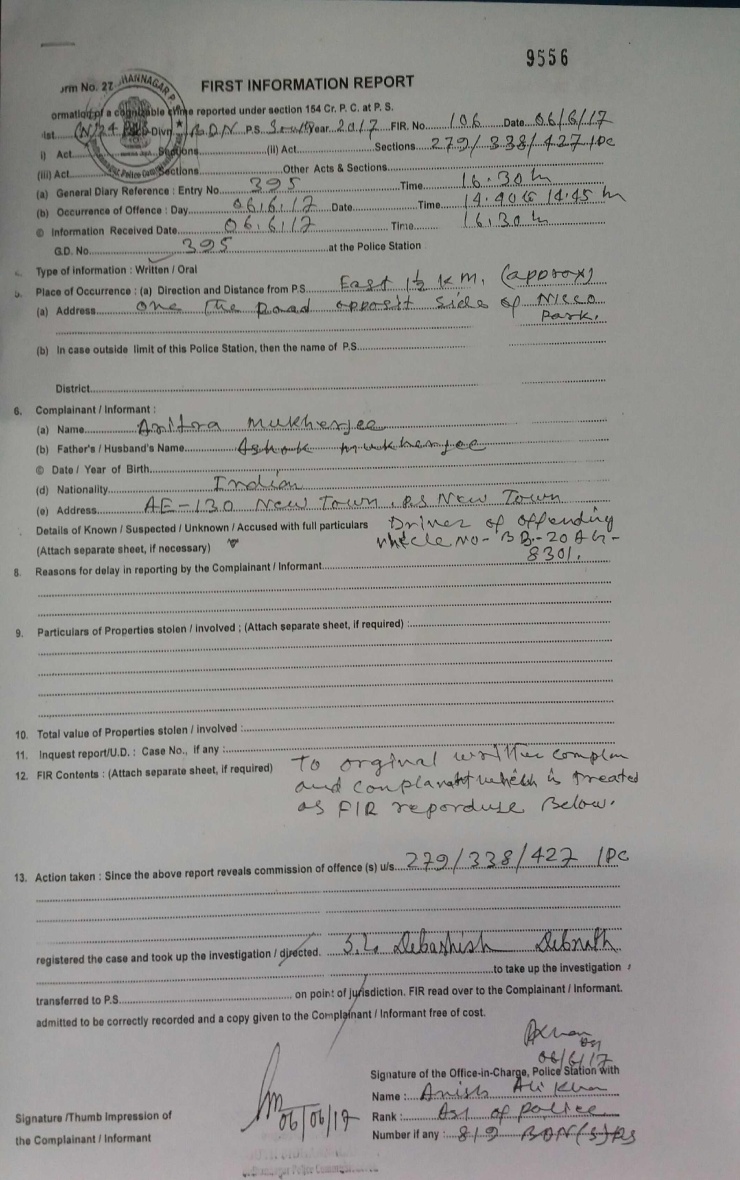 9556
orm No. 27
HANNAGAR P
FIRST INFORMATION REPORT
ormation of a cognizable crime reported under section 154 Cr. P. C. at P. S.
ist. (N) 24 Divn. BDN P.S. Year 2017 FIR. No 106 Date 06/6/17
i) Act Sections (ii) Act Sections 279/338/427 IPC
(iii) Act Sections Other Acts & Sections
(a) General Diary Reference : Entry No. 395 Time 16.30 h
(b) Occurrence of Offence : Day 06.6.17 Date Time 14.40 to 14.45 h
© Information Received Date 06.6.17 Time 16.30 h
G.D. No. 395 at the Police Station
Type of information : Written / Oral
Place of Occurrence : (a) Direction and Distance from P.S. East 1½ KM. (approx)
(a) Address one the road opposit side of Nicco
Park.
(b) In case outside limit of this Police Station, then the name of P.S.
District
6. Complainant / Informant :
(a) Name Mukherjee
(b) Father's / Husband's Name Ashok Mukherjee
© Date / Year of Birth
(d) Nationality Indian
(e) Address AE-130 New Town, P.S New Town
Details of Known / Suspected / Unknown / Accused with full particulars Driver of offending
(Attach separate sheet, if necessary) vhicle no-
8301.
8. Reasons for delay in reporting by the Complainant / Informant
9. Particulars of Properties stolen / involved ; (Attach separate sheet, if required) :
10. Total value of Properties stolen / involved :
11. Inquest report/U.D. : Case No., if any :
12. FIR Contents : (Attach separate sheet, if required) To orginal written complen
and which is treated
as FIR reporduse Below.
13. Action taken : Since the above report reveals commission of offence (s) u/s. 279/338/427 IPC
registered the case and took up the investigation / directed. S.I. Debashish Debnath
to take up the investigation
transferred to P.S. on point of jurisdiction. FIR read over to the Complainant / Informant.
admitted to be correctly recorded and a copy given to the Complainant / Informant free of cost.
06/6/17
Signature of the Office-in-Charge, Police Station with
Name : Anish Ali Khan
06/06/17
Rank : ASI of police
Signature /Thumb Impression of
the Complainant / Informant
Number if any : 819 BDN(S)PS